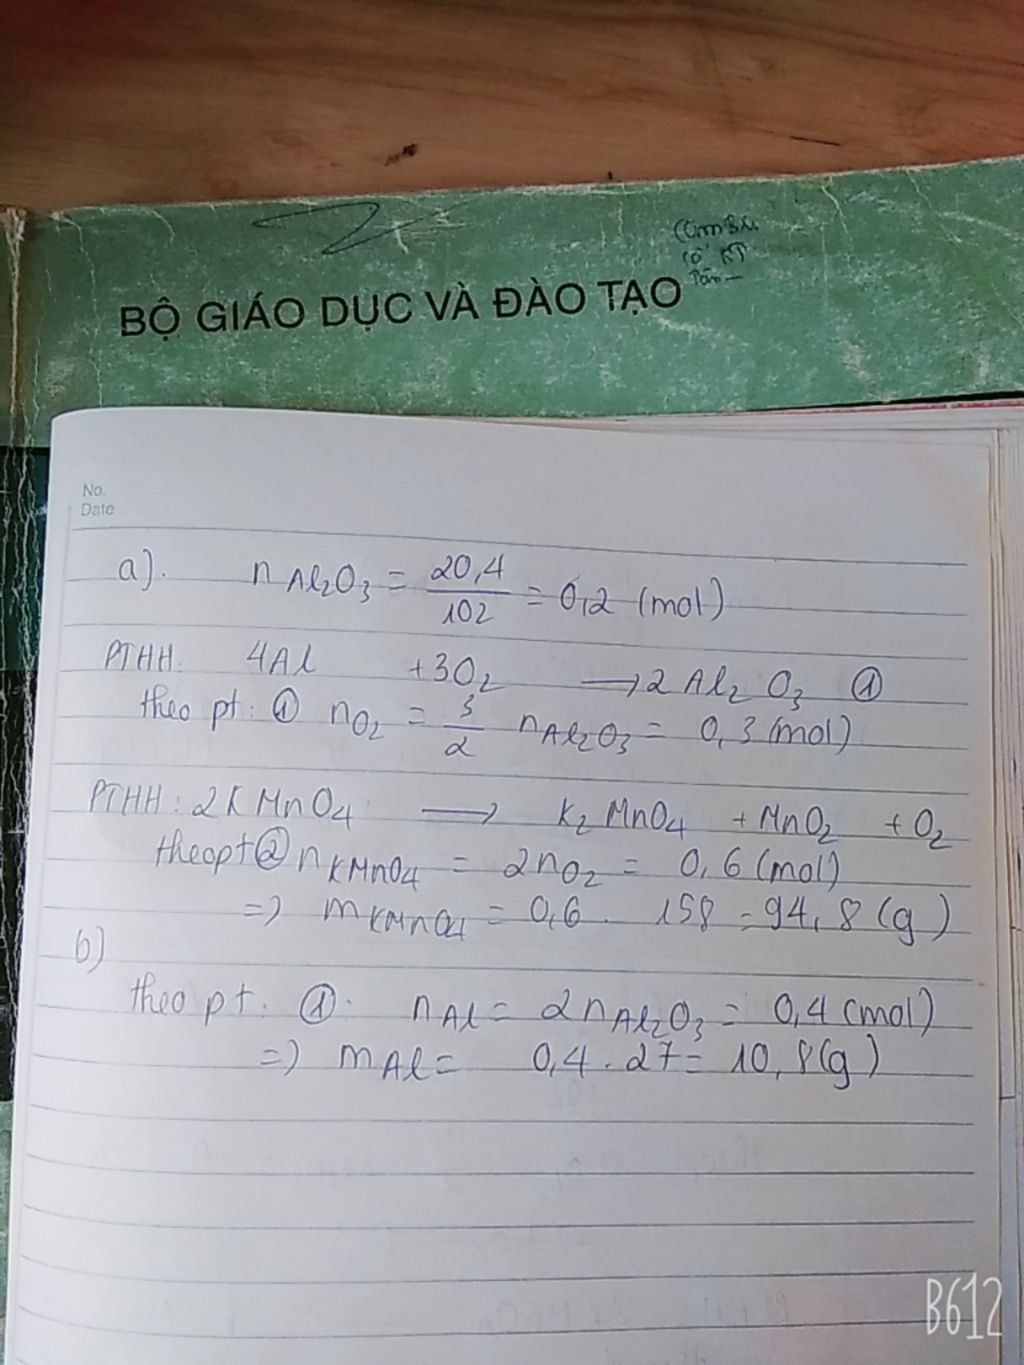 BỘ GIÁO DỤC VÀ ĐÀO TẠO
No.
Date
a). n Al₂O₃ = 20,4 / 102 = 0,2 (mol)
PTHH: 4Al + 3O₂ → 2 Al₂O₃ ①
theo pt: ① nO₂ = 3/2 nAl₂O₃ = 0,3 (mol)
PTHH: 2KMnO₄ → K₂MnO₄ + MnO₂ + O₂
theo pt ② nKMnO₄ = 2nO₂ = 0,6 (mol)
=> mKMnO₄ = 0,6 . 158 = 94,8 (g)
b)
theo pt: ①: nAl = 2nAl₂O₃ = 0,4 (mol)
=> mAl = 0,4 . 27 = 10,8 (g)
B612